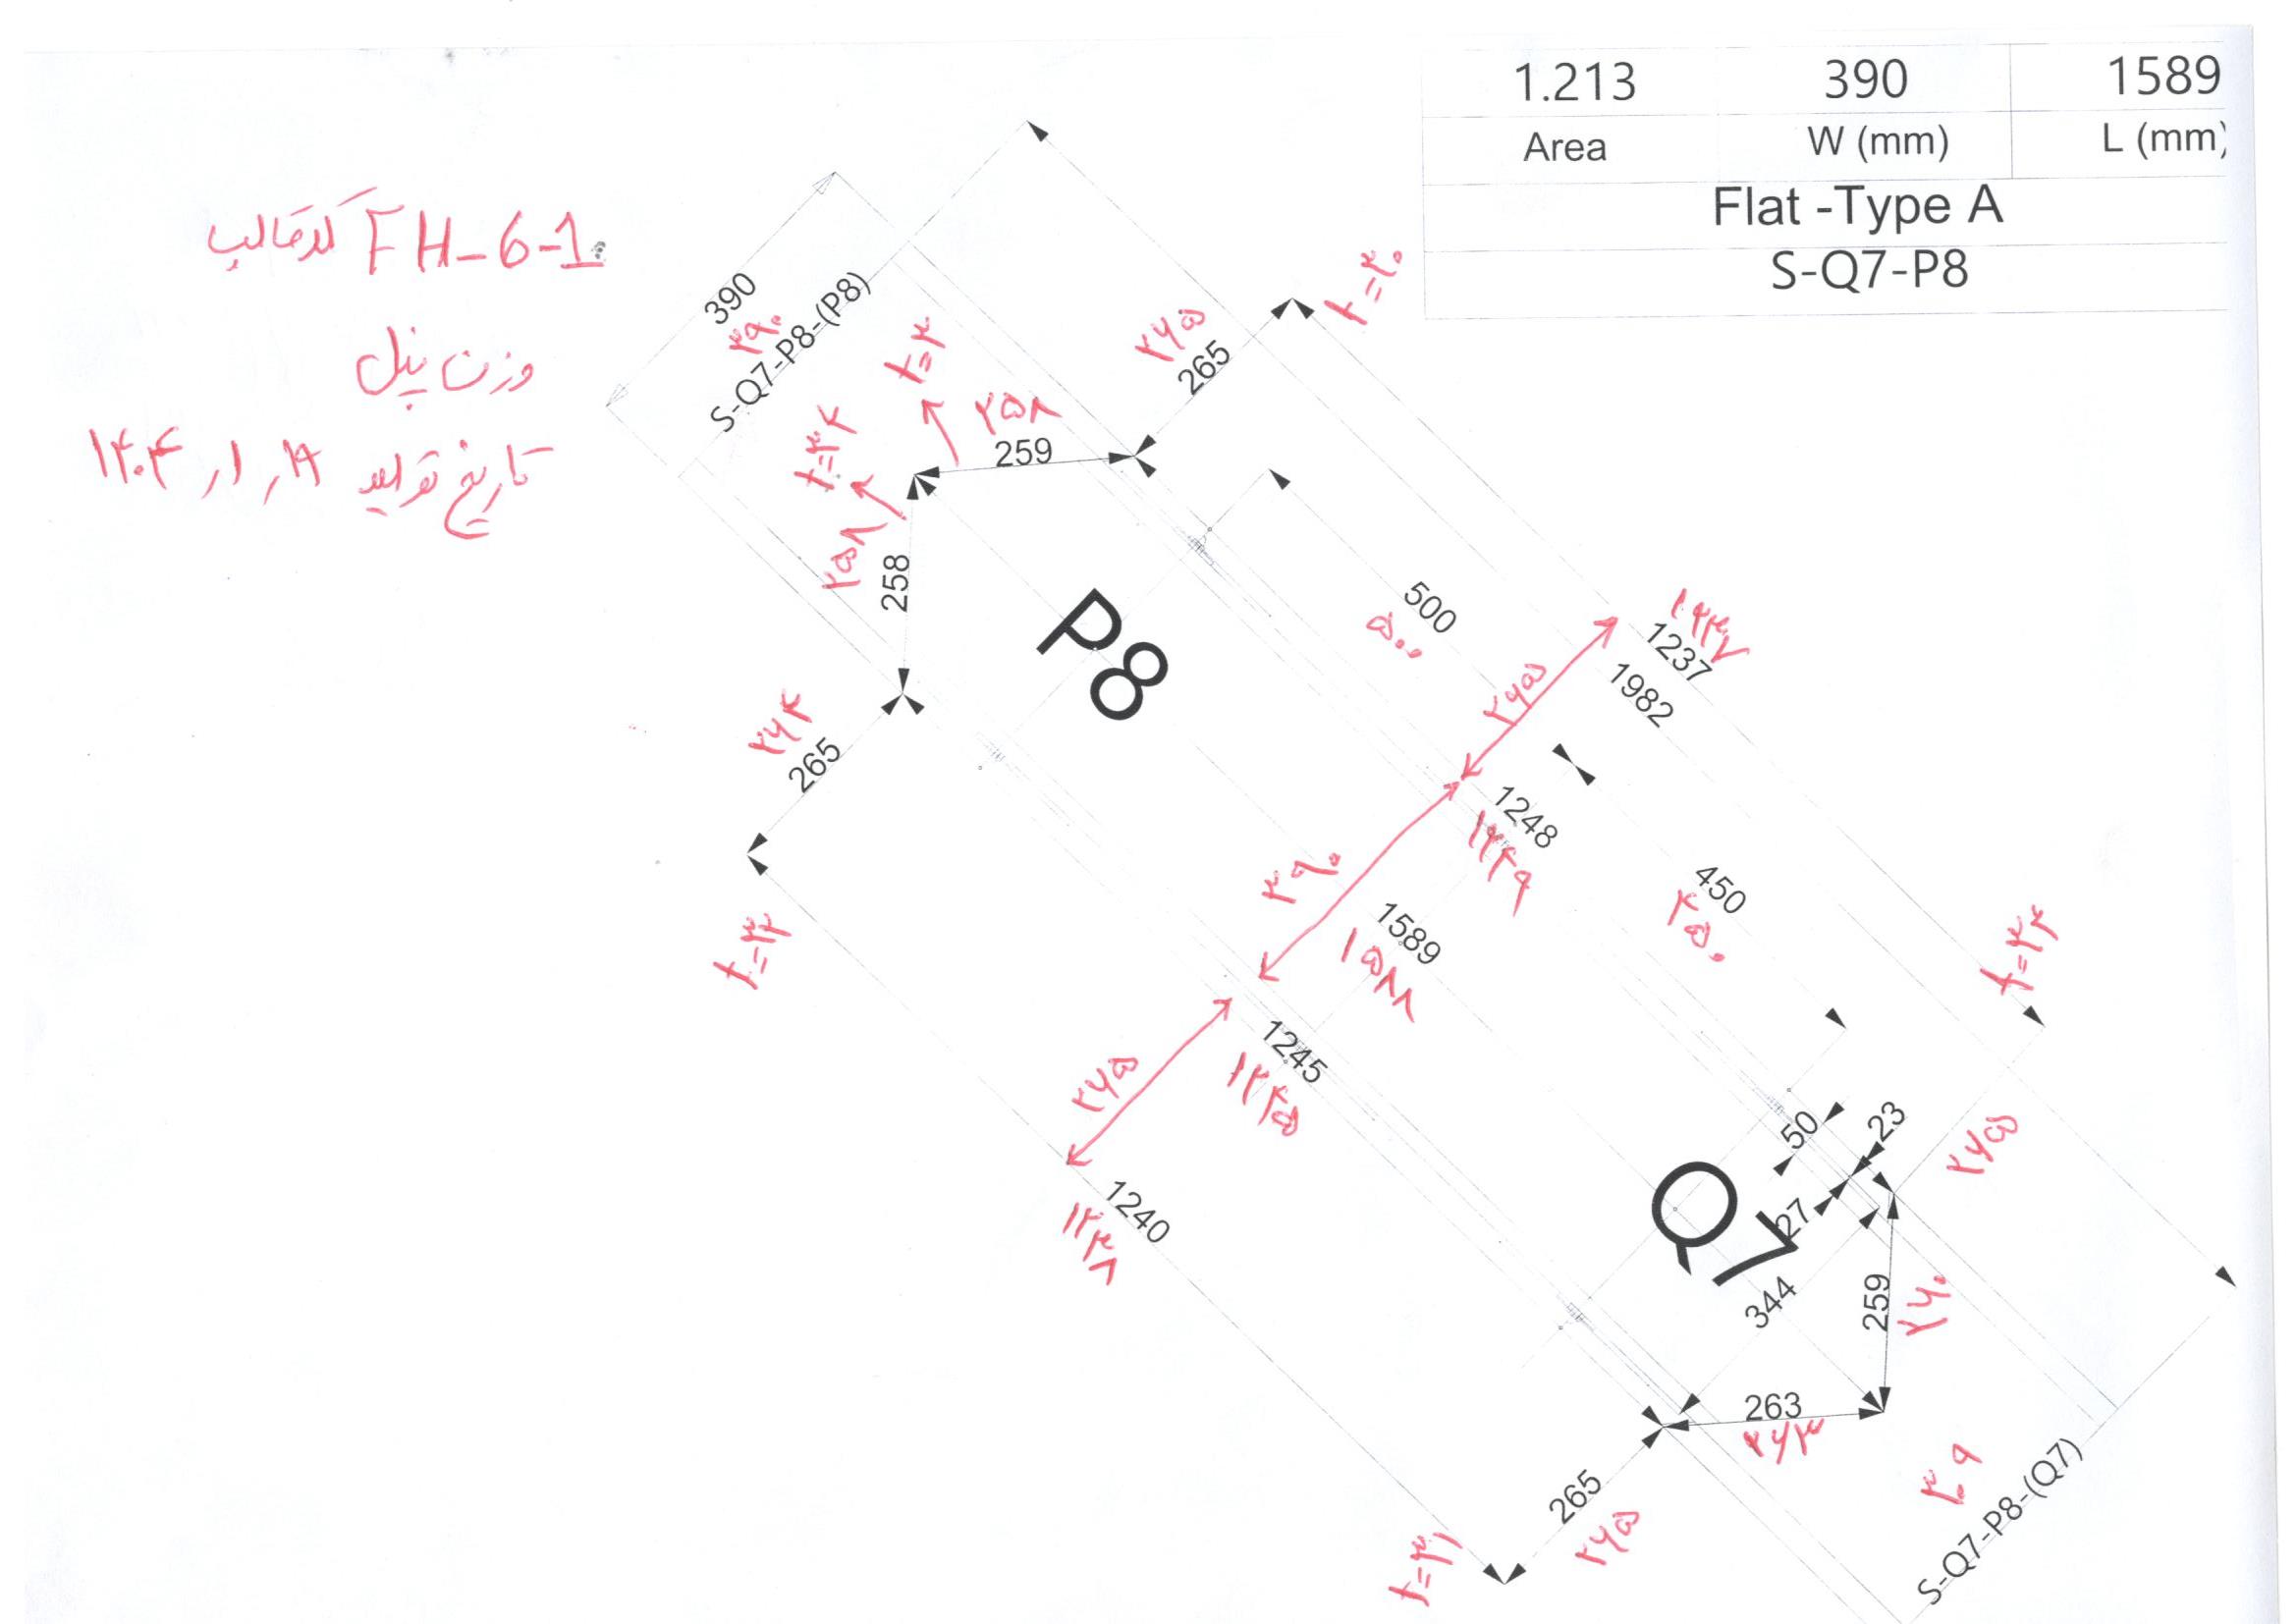 1.213 390 1589
Area W (mm) L (mm)
Flat -Type A
S-Q7-P8
کد قالب FH-6-1
وزن پنل
تاریخ تولید ۱۴۰۴٫۱٫۱۹
390
۳۹۰
S-Q7-P8-(P8)
t=۳۰
۲۶۵
265
۲۵۸
259
t=۳۴
۲۵۸
258
P8
500
۵۰۰
۱۲۳۷
1237
1982
۲۶۵
۲۶۴
265
t=۳۲
1248
۱۲۴۹
450
۴۵۰
۳۹۰
1589
۱۵۸۸
1245
۱۲۴۵
۲۶۵
1240
۱۲۳۸
۲۶۵
50
23
27
Q7
344
259
۲۶۰
263
۲۶۳
265
۲۶۵
t=۳۱
S-Q7-P8-(Q7)